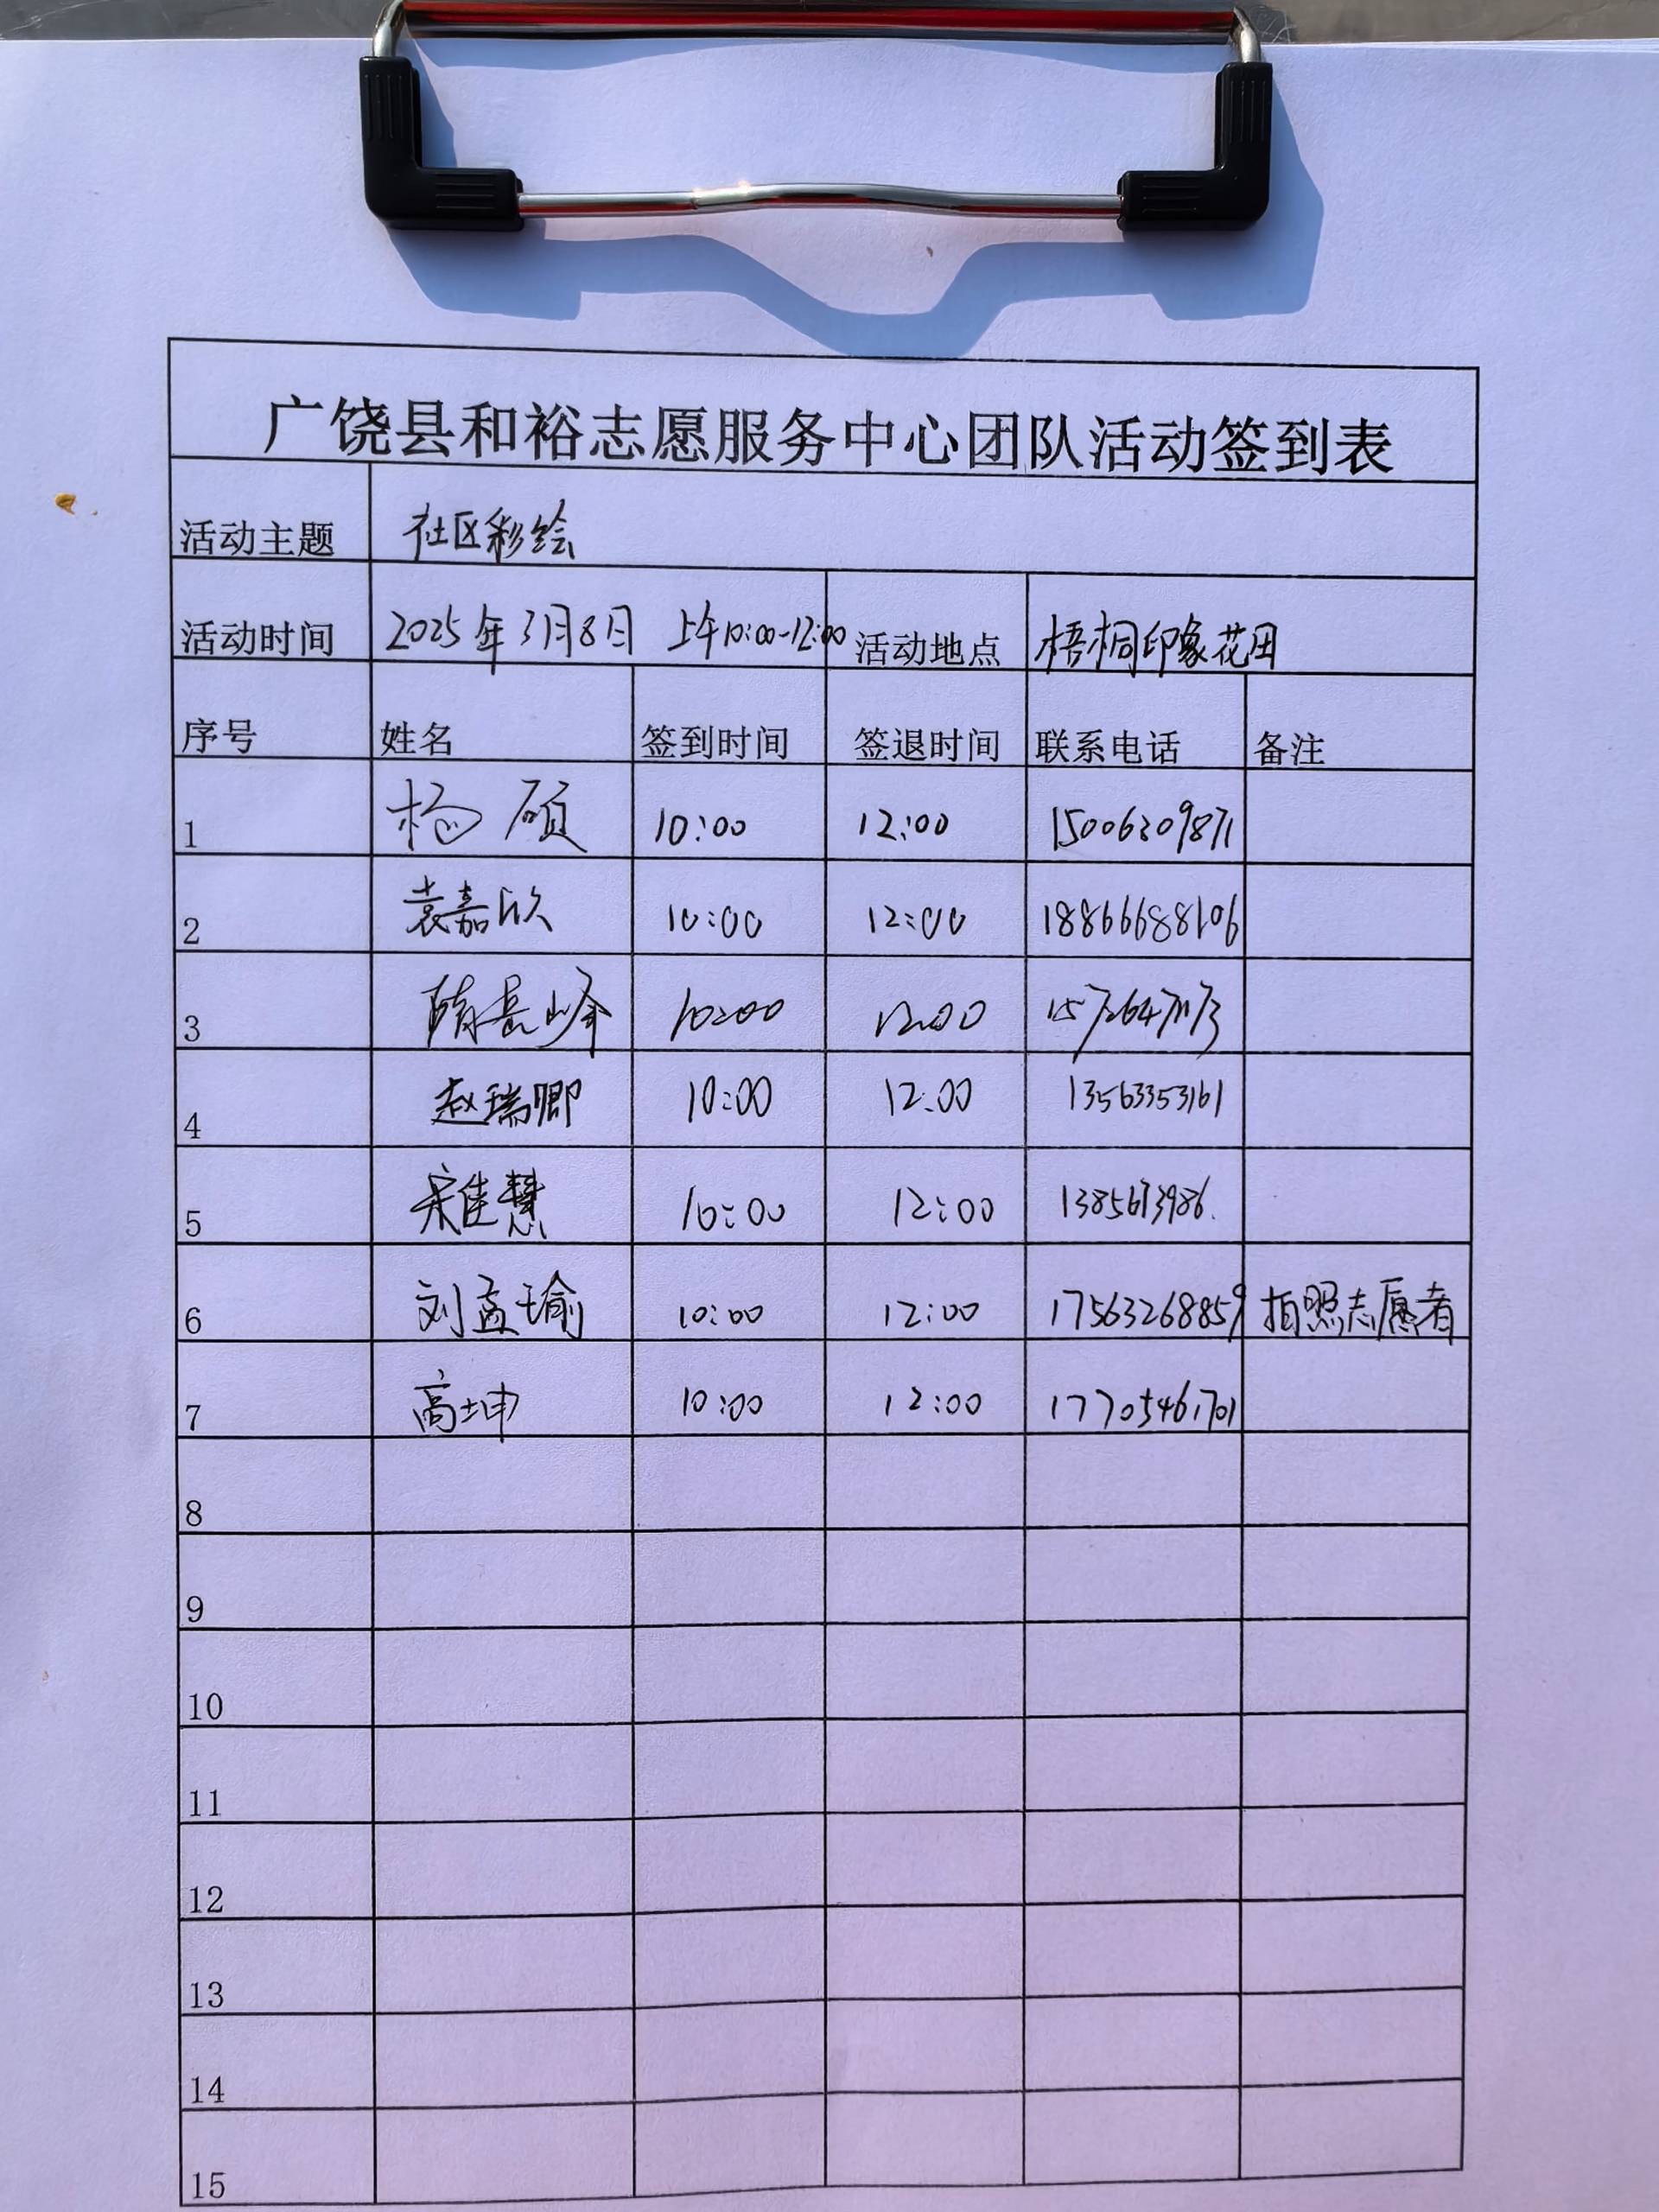 广饶县和裕志愿服务中心团队活动签到表
活动主题 社区彩绘
活动时间 2025年3月8日 上午10:00-12:00 活动地点 梧桐印象花田
序号 姓名 签到时间 签退时间 联系电话 备注
1 杨硕 10:00 12:00 15006309871
2 袁嘉欣 10:00 12:00 18866688106
3 10:00 12:00
4 赵瑞卿 10:00 12:00 13563353161
5 宋佳慧 10:00 12:00
6 刘孟瑜 10:00 12:00 17563268859 拍照志愿者
7 高坤 10:00 12:00 17705461701
8
9
10
11
12
13
14
15